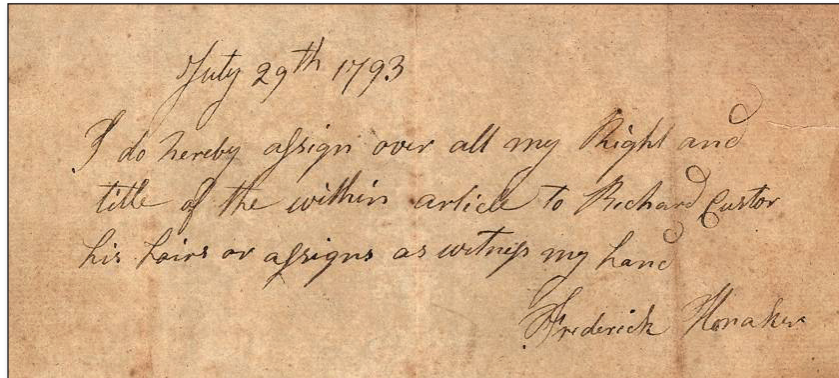 July 29th 1793
I do hereby assign over all my Right and
title of the within article to Richard Custor
his hairs or assigns as witness my hand
Frederick Honaker